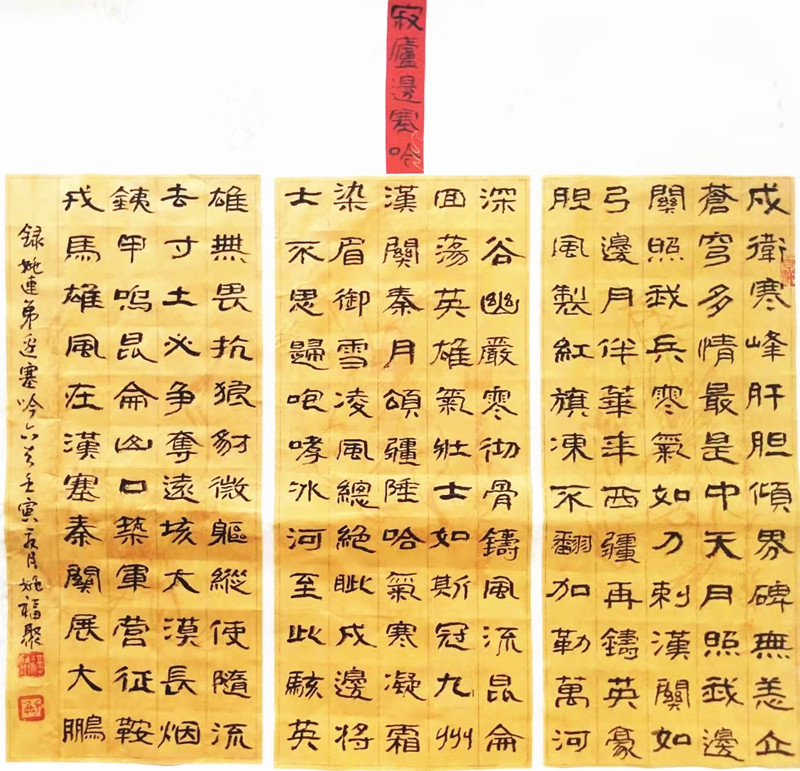 寂廬邊塞吟
戍衛寒峰肝胆傾界碑無恙立
蒼穹多情最是中天月照我邊
關照我兵寒氣如刀刺漢關如
弓邊月伴華年西疆再鑄英豪
胆風製紅旗凍不翻加勒萬河
深谷幽嚴寒彻骨鑄風流昆侖
回蕩英雄氣壯士如斯冠九州
漢關秦月頌疆陲哈氣寒凝霜
染眉御雪凌風總絕眦戍邊將
士不思歸咆哮冰河至此駭英
雄無畏抗狼豺微軀縱使隨流
去寸土必争奪遠垓大漠長烟
銕甲鳴昆侖山口築軍营征鞍
戎馬雄風在漢塞秦關展大鵬
録姚連弟邊塞吟六首壬寅夏月姚福聚